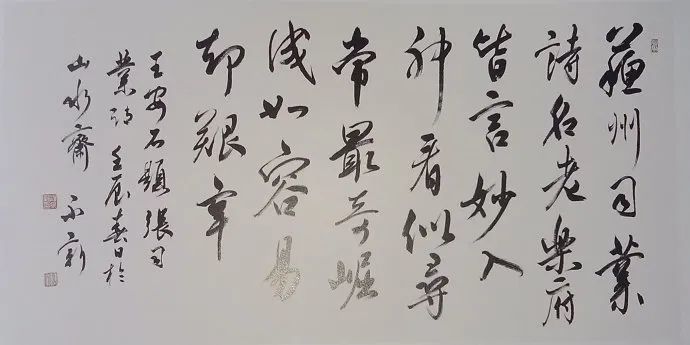 蘇州司業
詩名老樂府
皆言妙入
神看似尋
常最奇崛
成如容易
却艱辛
王安石題張司
業詩 壬辰春日於
山水齋